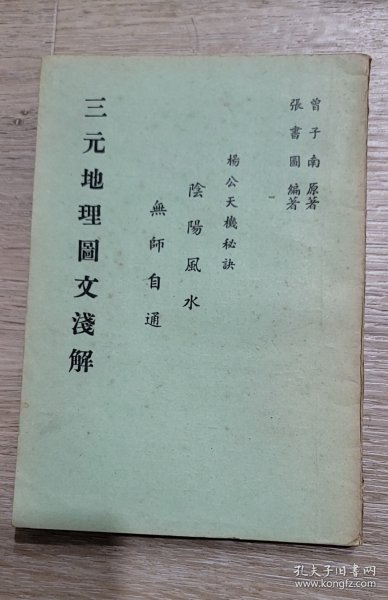 曾子南原著
張書圖編著
楊公天機秘訣
陰陽風水
無師自通
三元地理圖文淺解
孔夫子旧书网
www.kongfz.com